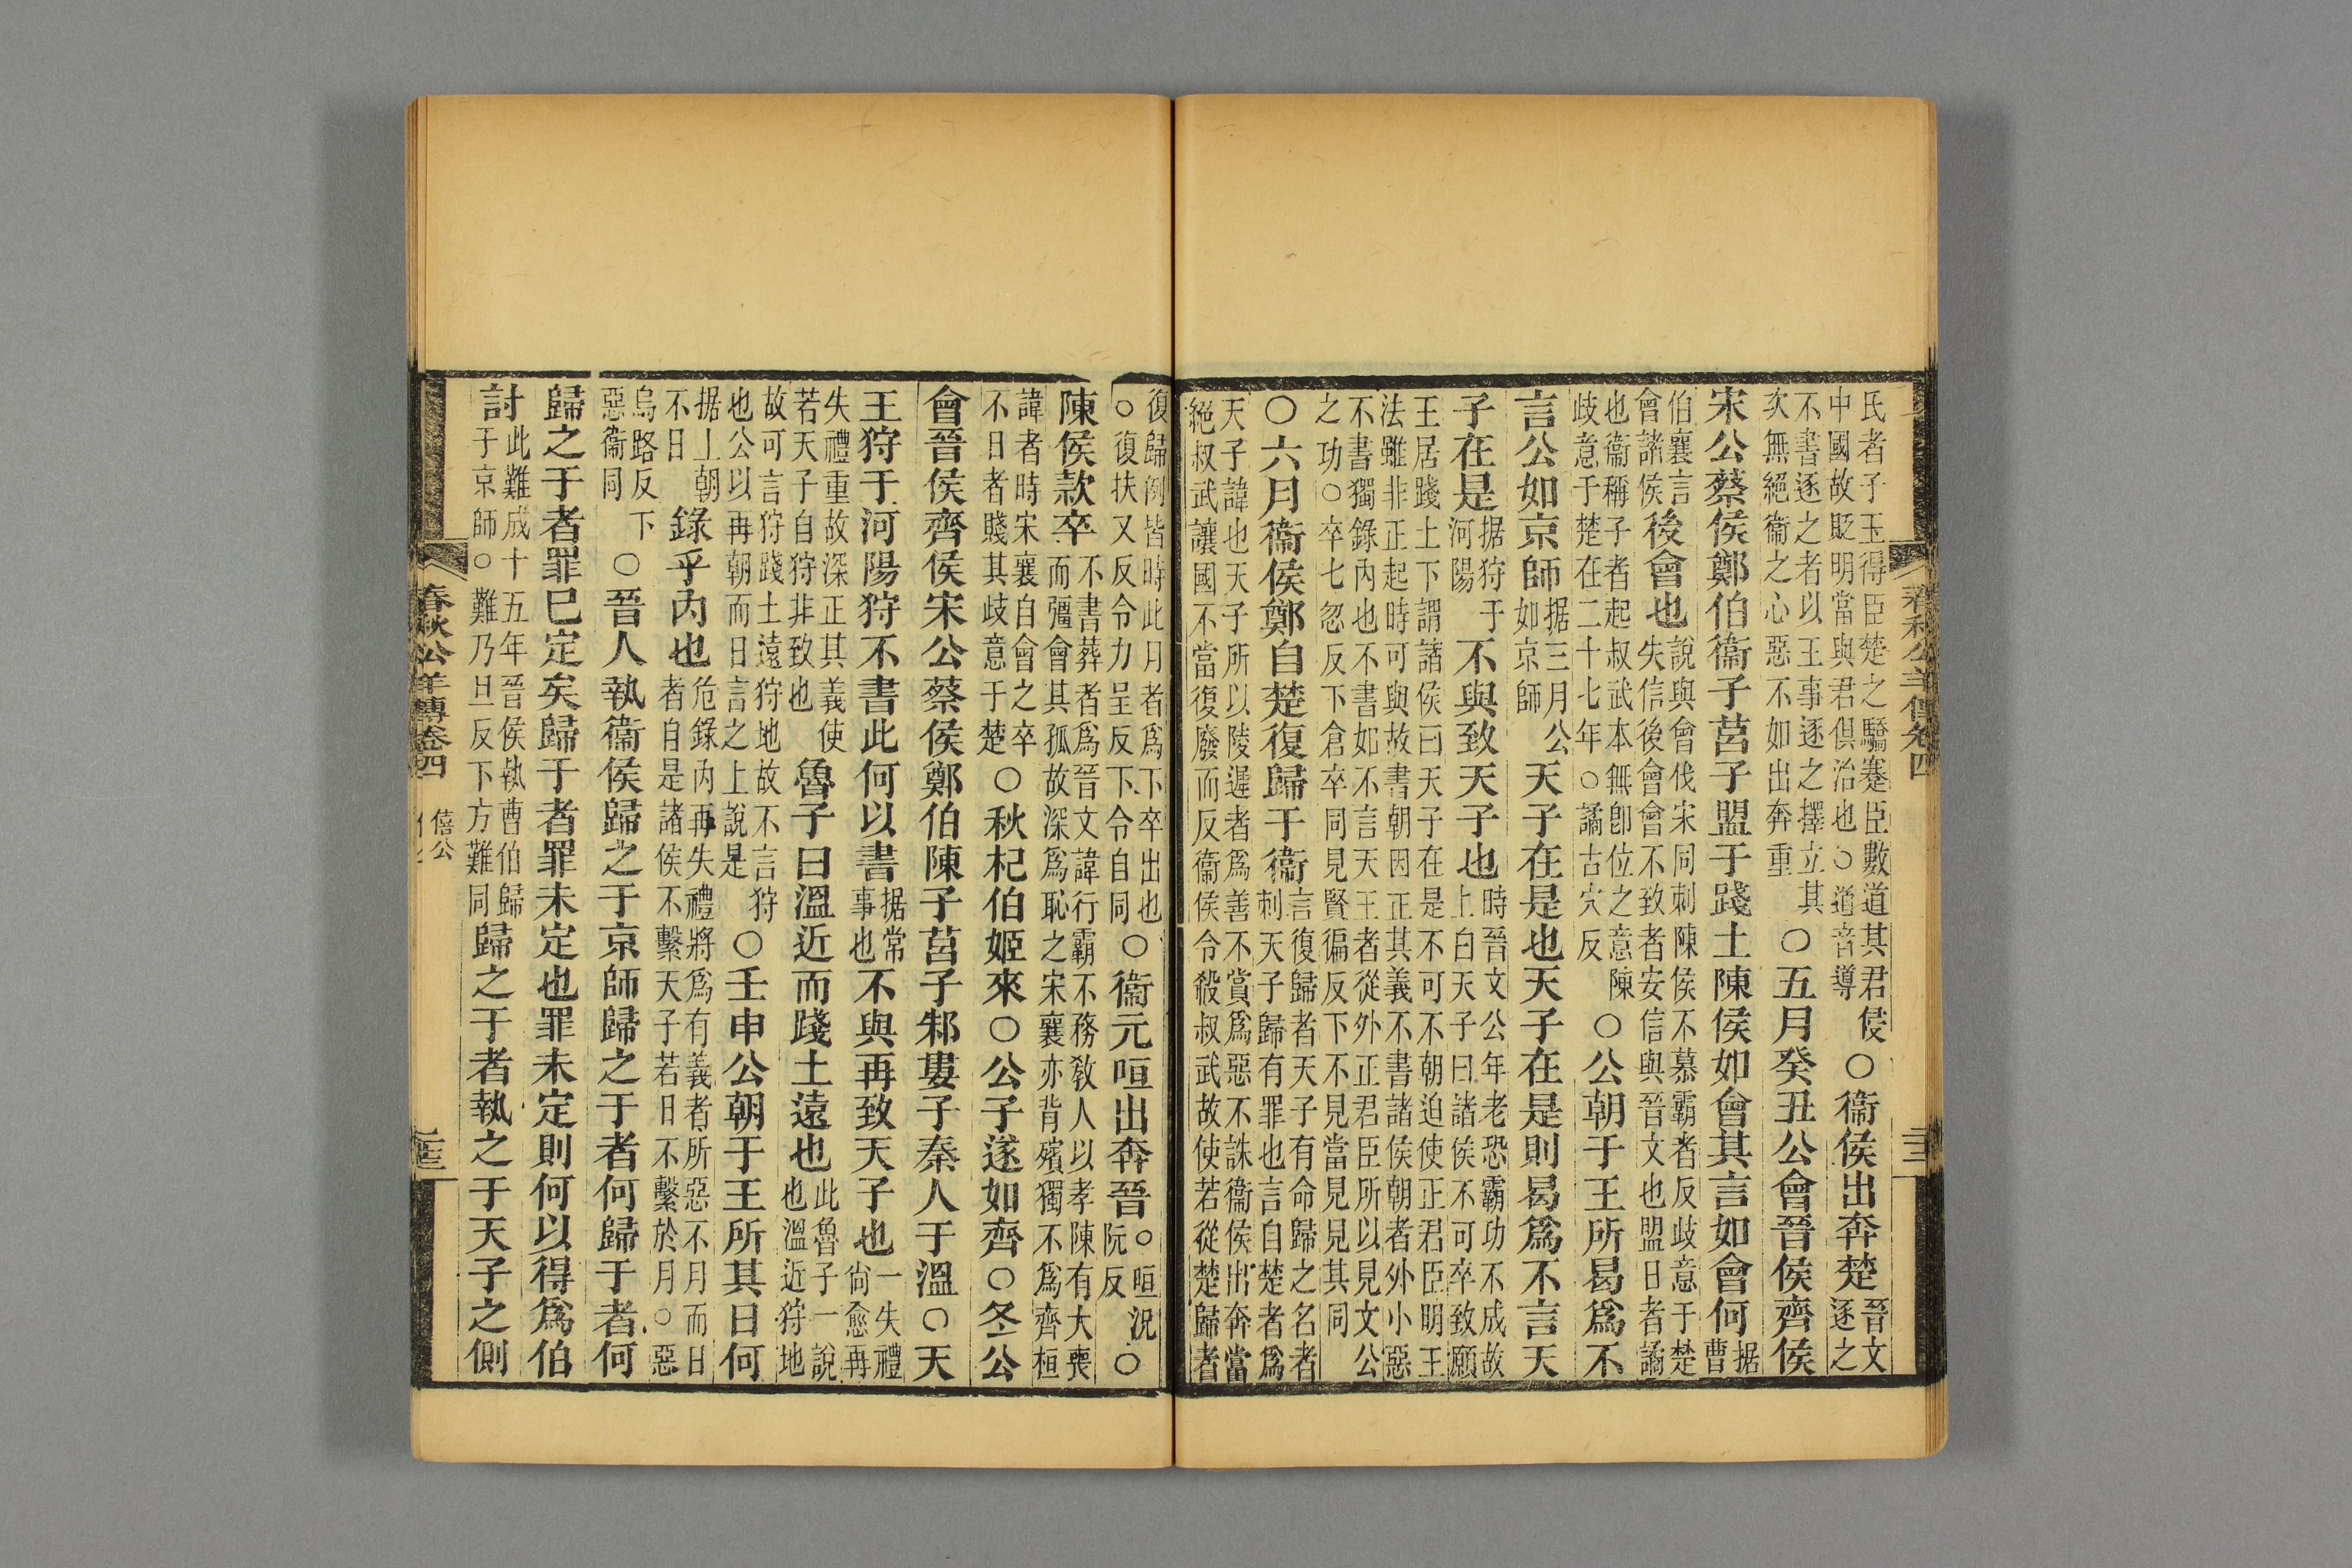 氏者子玉得臣楚之驕蹇臣數道其君侵
中國故貶明當與君俱治也○道音導
○衞侯出奔楚
晉文逐之
不書逐之者以王事逐之擇立其
次無絕衞之心惡不如出奔重
○五月癸丑公會晉侯齊侯
宋公蔡侯鄭伯衞子莒子盟于踐土陳侯如會其言如會何
据曹
伯襄言會諸侯
後會也
說與會伐宋同刺陳侯不慕霸者反歧意于楚
失信後會會不致者安信與晉文也盟日者譎
也衞稱子者起叔武本無卽位之意陳
歧意于楚在二十七年○譎古穴反
○公朝于王所曷爲不
言公如京師
据三月公如京師
天子在是也天子在是則曷爲不言天
子在是
据狩于河陽
不與致天子也
時晉文公年老恐霸功不成故
上白天子曰諸侯不可卒致願
王居踐土下謂諸侯曰天子在是不可不朝迫使正君臣明王
法雖非正起時可與故書朝因正其義不書諸侯朝者外小惡
不書獨錄内也不書如不言天王者從外正君臣所以見文公
之功○卒七忽反下倉卒同見賢徧反下不見當見見其同
○六月衞侯鄭自楚復歸于衞
言復歸者天子有命歸之名者
刺天子歸有罪也言自楚者爲
天子諱也天子所以陵遲者爲善不賞爲惡不誅衞侯出奔當
絕叔武讓國不當復廢而反衞侯令殺叔武故使若從楚歸者
復歸例皆時此月者爲下卒出也
○復扶又反令力呈反下令自同
○衞元咺出奔晉
○咺況阮反
○
陳侯款卒
不書葬者爲晉文諱行霸不務敎人以孝陳有大喪
而彊會其孤故深爲恥之宋襄亦背殯獨不爲齊桓
諱者時宋襄自會之卒
不日者賤其歧意于楚
○秋杞伯姬來○公子遂如齊○冬公
會晉侯齊侯宋公蔡侯鄭伯陳子莒子邾婁子秦人于溫○天
王狩于河陽狩不書此何以書
据常事也
不與再致天子也
一失禮尙愈再
失禮重故深正其義使
若天子自狩非致也
魯子曰溫近而踐土遠也
此魯子一說
也溫近狩地
故可言狩踐土遠狩地故不言狩
也公以再朝而日言之上說是
○壬申公朝于王所其日何
据上朝不日
錄乎内也
危錄内再失禮將爲有義者所惡不月而日
者自是諸侯不繫天子若日不繫於月○惡
烏路反下惡衞同
○晉人執衞侯歸之于京師歸之于者何歸于者何
歸之于者罪已定矣歸于者罪未定也罪未定則何以得爲伯
討
此難成十五年晉侯執曹伯歸
于京師○難乃旦反下方難同
歸之于者執之于天子之側
春秋公羊傳卷四
僖公